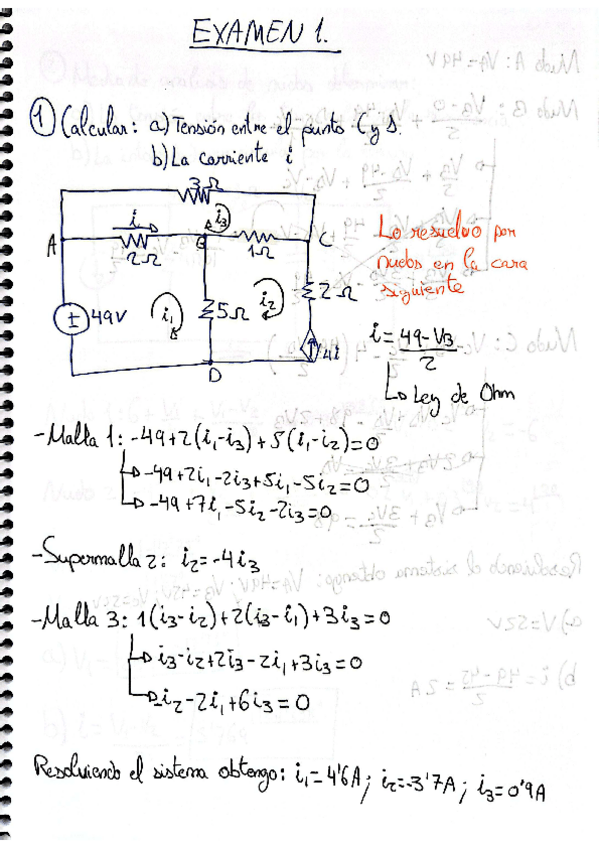 EXAMEN 1.
① Calcular: a) Tensión entre el punto C y D.
b) La corriente i
3Ω
i
i₃
A
B
C
2Ω
1Ω
49V
i₁
5Ω
i₂
2Ω
4i
D
Lo resuelvo por
nudos en la cara
siguiente
i = 49-VB / 2
Ley de Ohm
- Malla 1: -49+2(i₁-i₃)+5(i₁-i₂)=0
-49+2i₁-2i₃+5i₁-5i₂=0
-49+7i₁-5i₂-2i₃=0
- Supermalla 2: i₂=-4i₃
- Malla 3: 1(i₃-i₂)+2(i₃-i₁)+3i₃=0
i₃-i₂+2i₃-2i₁+3i₃=0
-i₂-2i₁+6i₃=0
Resolviendo el sistema obtengo: i₁=4'6A; i₂=-3'7A; i₃=0'9A